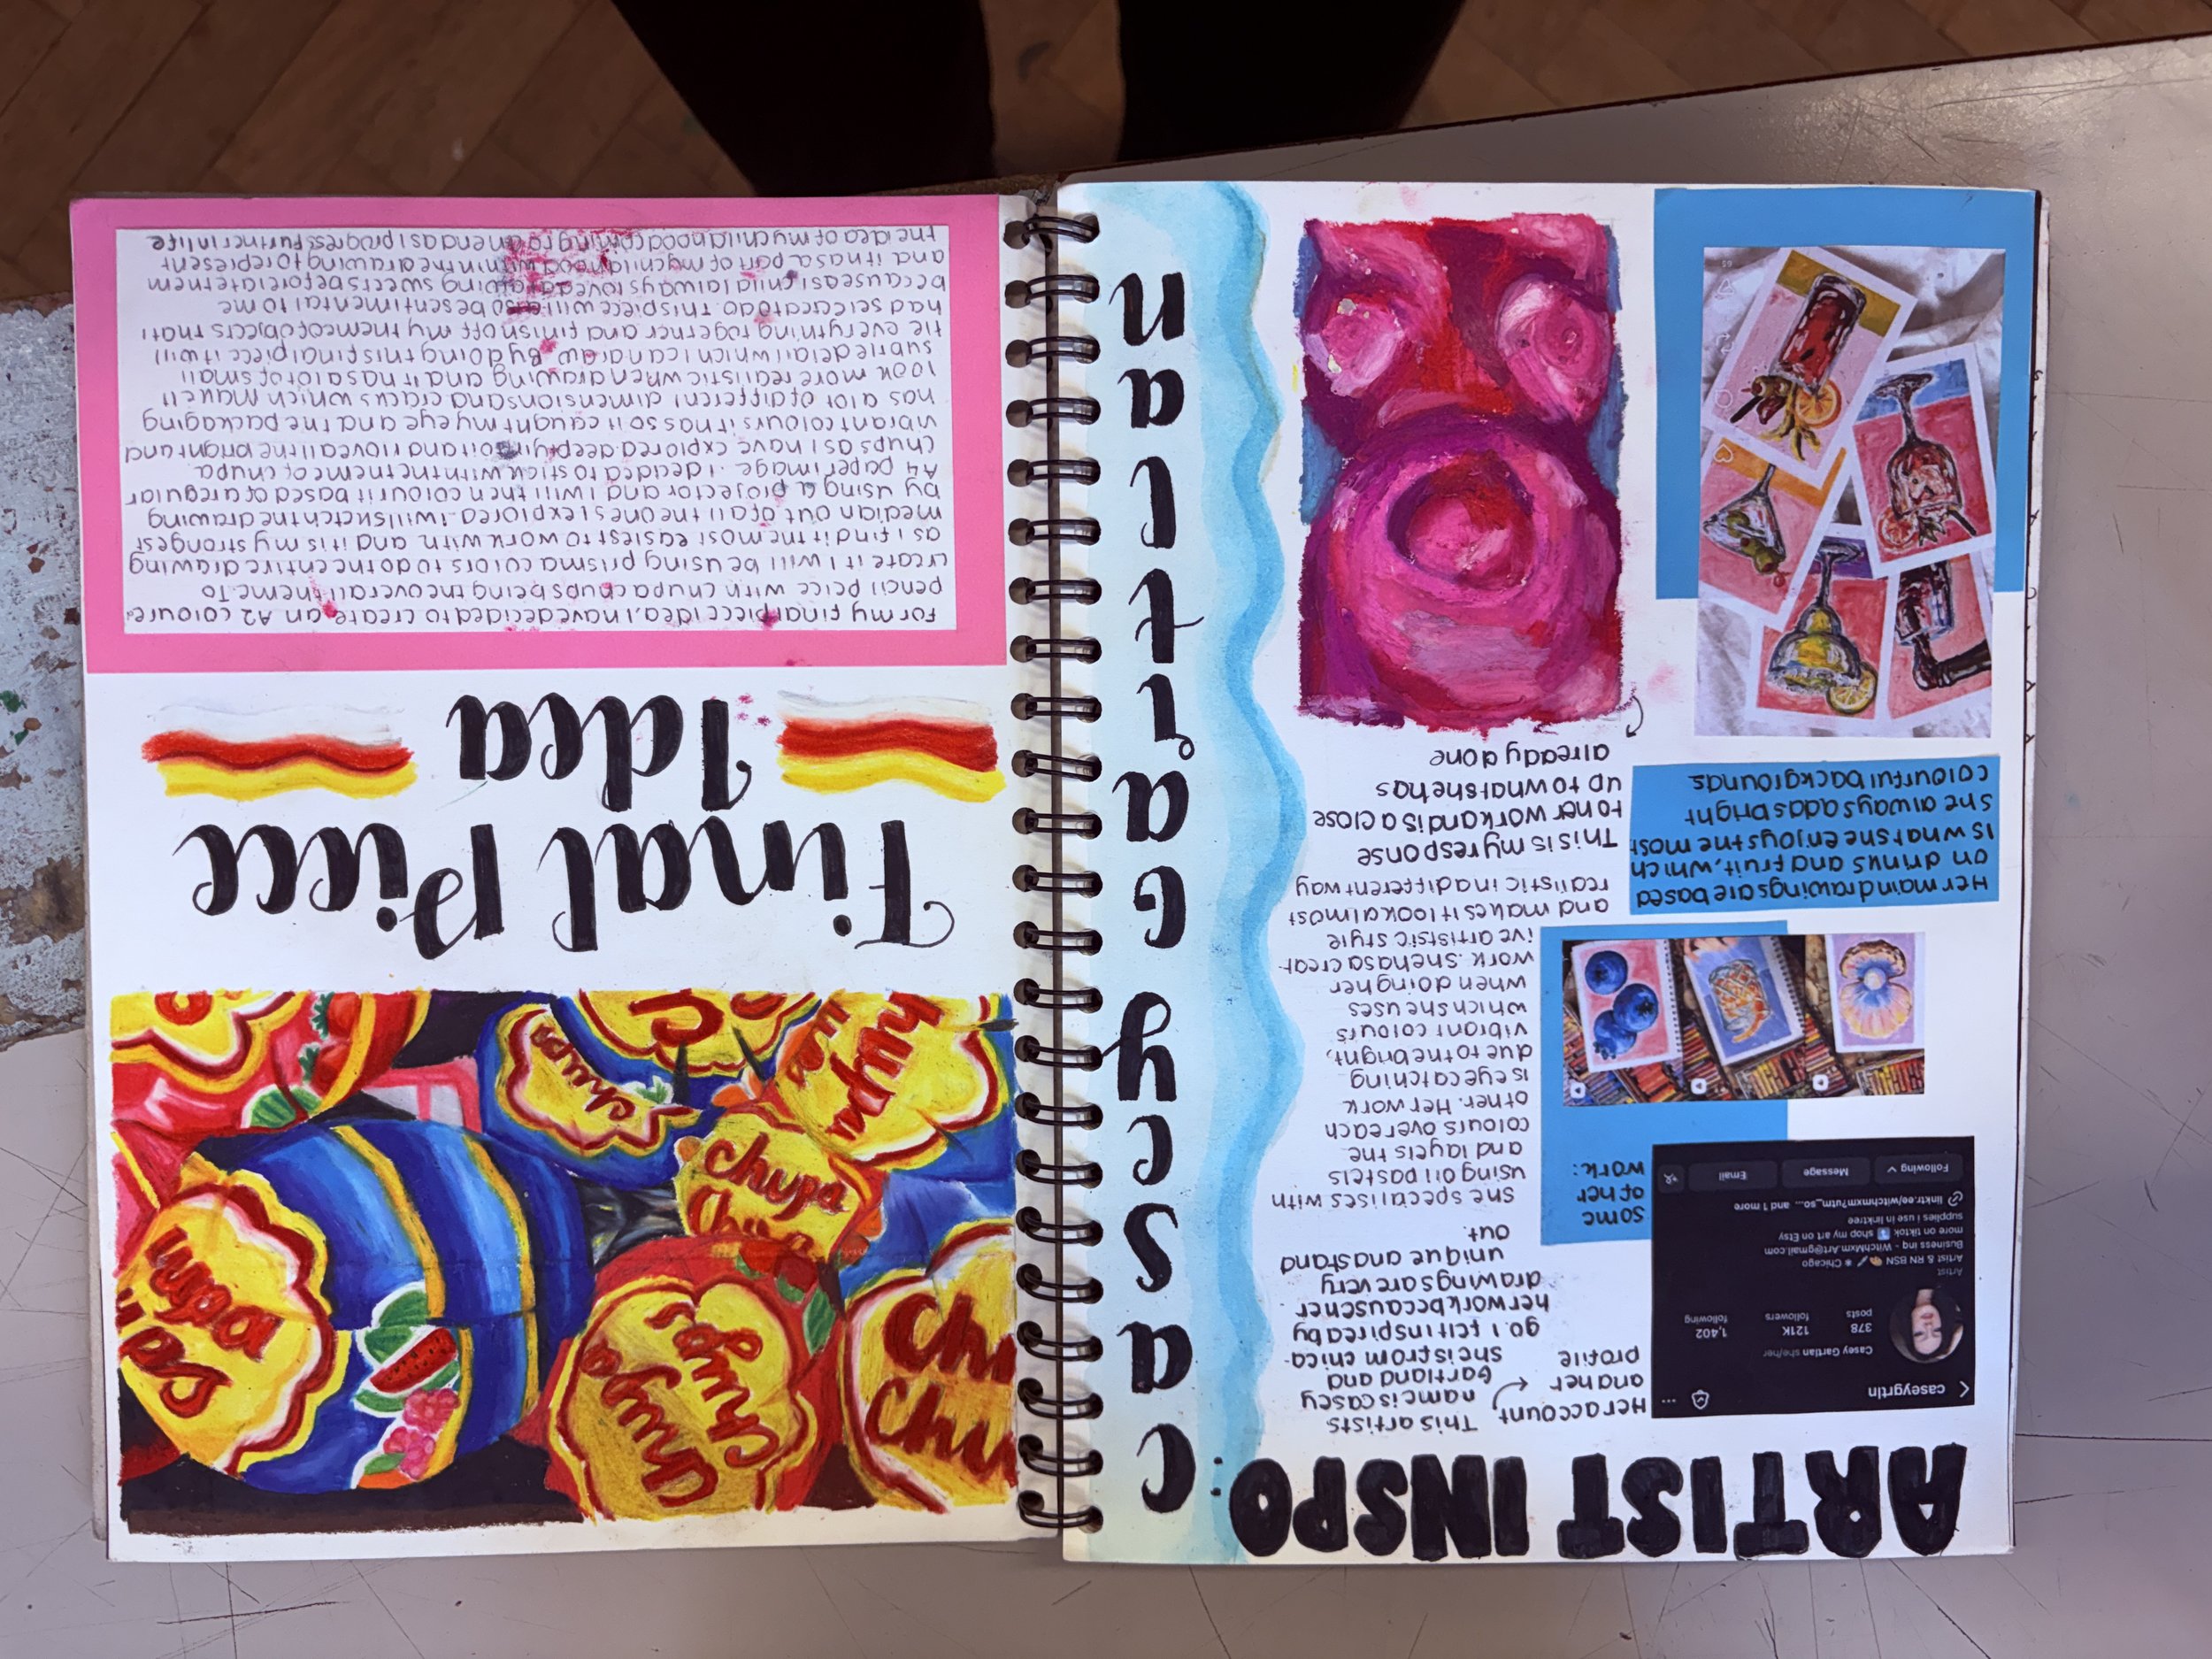 ARTIST INSPO:
Casey Gartlan
caseygrtln
Casey Gartlan she/her
378
posts
121K
followers
1,402
following
Artist
Artist & RN BSN Chicago
Business inq - WitchMxm.Art@gmail.com
more on tiktok shop my art on Etsy
supplies i use in linktree
linktr.ee/witchmxm?utm_so... and 1 more
Following
Message
Email
Her account
and her
profile
This artists
name is casey
Gartland and
she is from chica-
go. I felt inspired by
her work because her
drawings are very
unique and stand
out.
some
of her
work:
She specialises with
using oil pastels
and layers the
colours over each
other. Her work
is eye catching
due to the bright,
vibrant colours
which she uses
when doing her
work. She has a creat-
ive artistic style
and makes it look almost
realistic in a different way
Her main drawings are based
on drinks and fruit, which
is what she enjoys the most
she always adds bright
colourful backgrounds
This is my response
to her work and is a close
up to what she has
already done
chupa
chups
Chupa
Chups
Chu
Chu
Chupa
chupa
chupa
Chupa
Chups
Final Piece
Idea
For my final piece idea, I have decided to create an A2 coloured
pencil peice with chupa chups being the overall theme. To
create it I will be using prisma colors to do the entire drawing
as i find it the most easiest to work with and it is my strongest
median out of all the ones I explored. I will sketch the drawing
by using a projector and I will then colour it based of a regular
A4 paper image. i decided to stick with the theme of chupa
chups as I have explored deeply in to it and I love all the bright and
vibrant colours it has so it caught my eye and the packaging
has a lot of different dimensions and cracks which make it
look more realistic when drawing and it has a lot of small
subtle detail which I can draw. By doing this final piece it will
tie everything together and finish off my theme of objects that i
had selected to do. This piece will also be sentimental to me
because as i child I always loved having sweets before i ate them
and it has a part of my childhood within the drawing to represent
the idea of my childhood coming to an end as i progress further in life